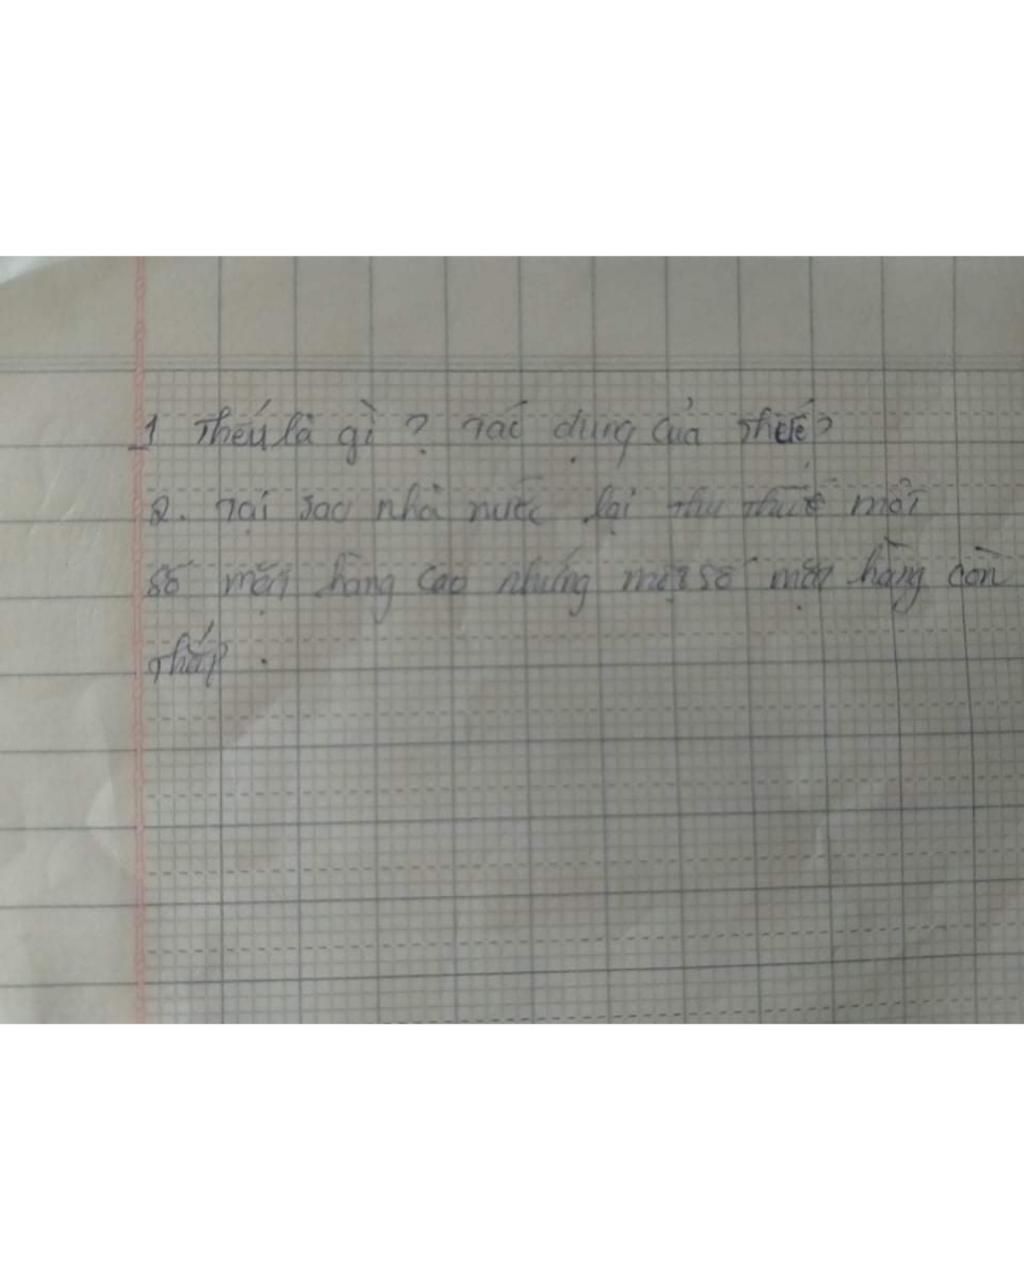 1 Thếu là gì ? Tác dụng của Thuế?
2. Tại sao nhà nước lại thu thuế một
số mặn hàng cao nhưng một số mặn hàng còn
thấp .